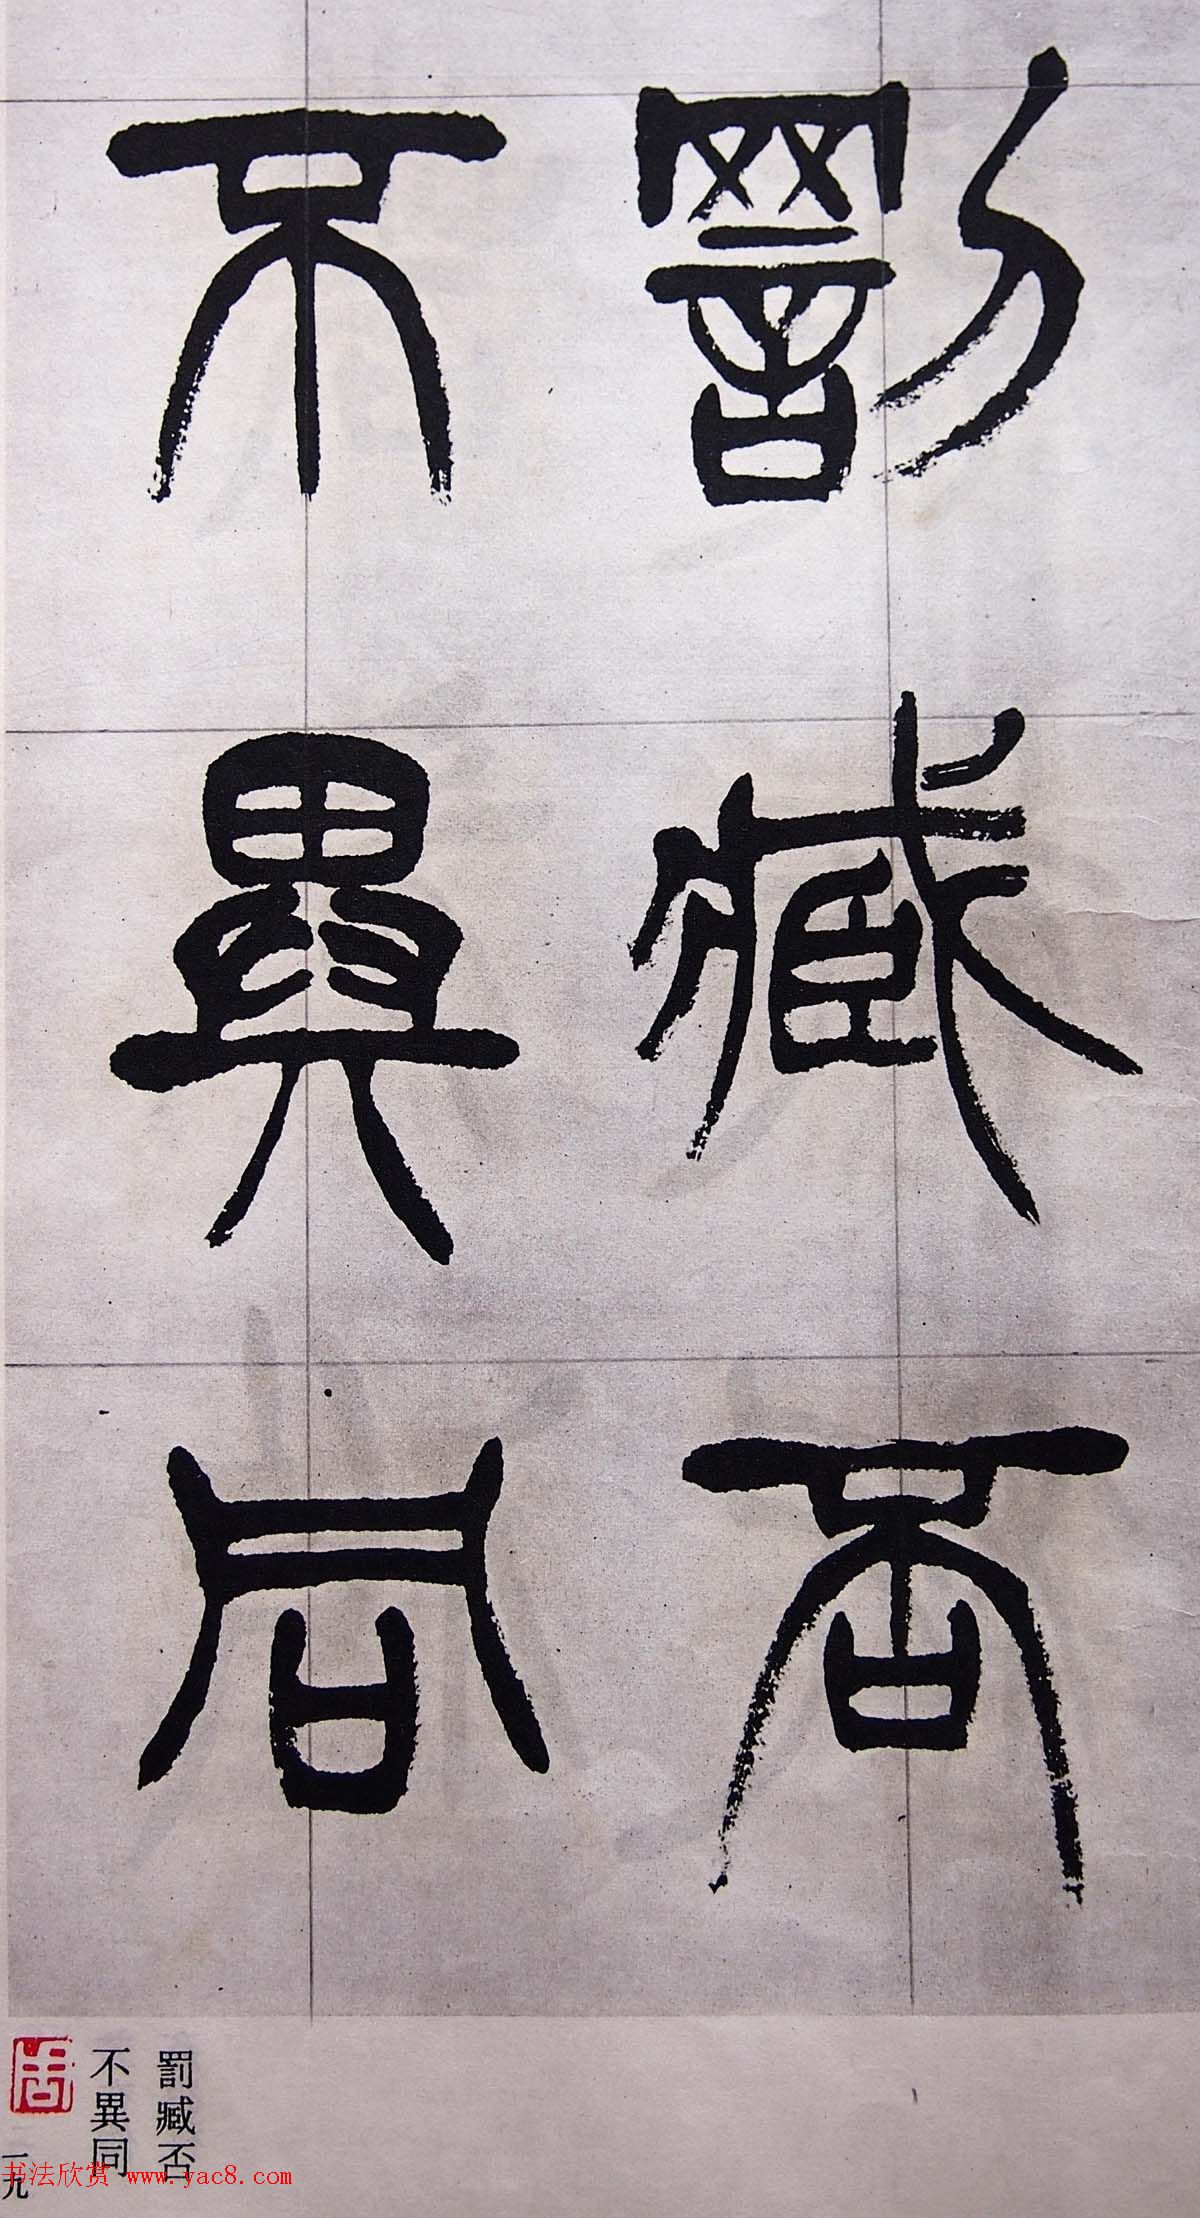 罰臧否
不異同
罰臧否
不異同
一九
书法欣赏 www.yac8.com